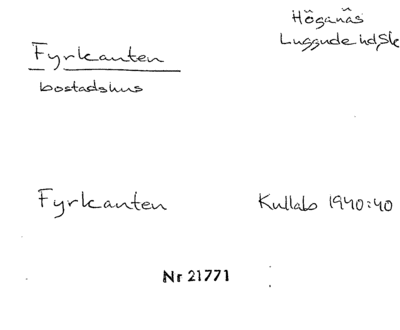 Höganäs
Luggude hd, Sk
Fyrkanten
bostadshus
Fyrkanten
Kullabo 1940:40
Nr 21771